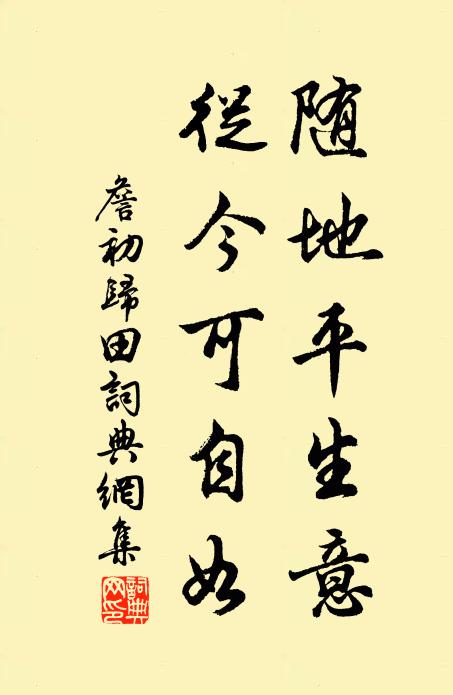 随地平生意
從今可自如
詹初歸田詞典網集
詞典網印